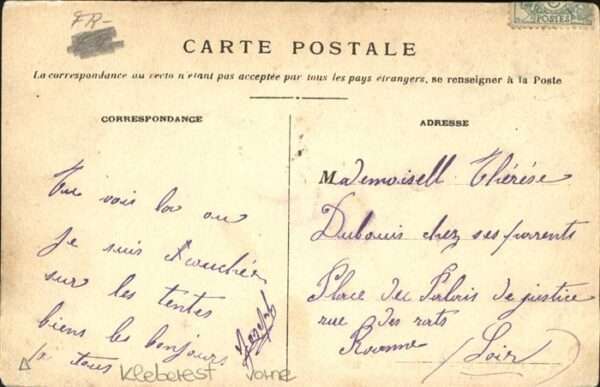 FR-
POSTES
CARTE POSTALE
La correspondance au recto n'étant pas acceptée par tous les pays étrangers, se renseigner à la Poste
CORRESPONDANCE
Tu vois la ou
je suis couchée
sur les tentes
biens les bonjours
a tous
Kleberest
ADRESSE
Mademoisell Thérèse
Dubouis chez ses parrents
Place de Palais de justice
rue des rats
Roanne
(Loir)